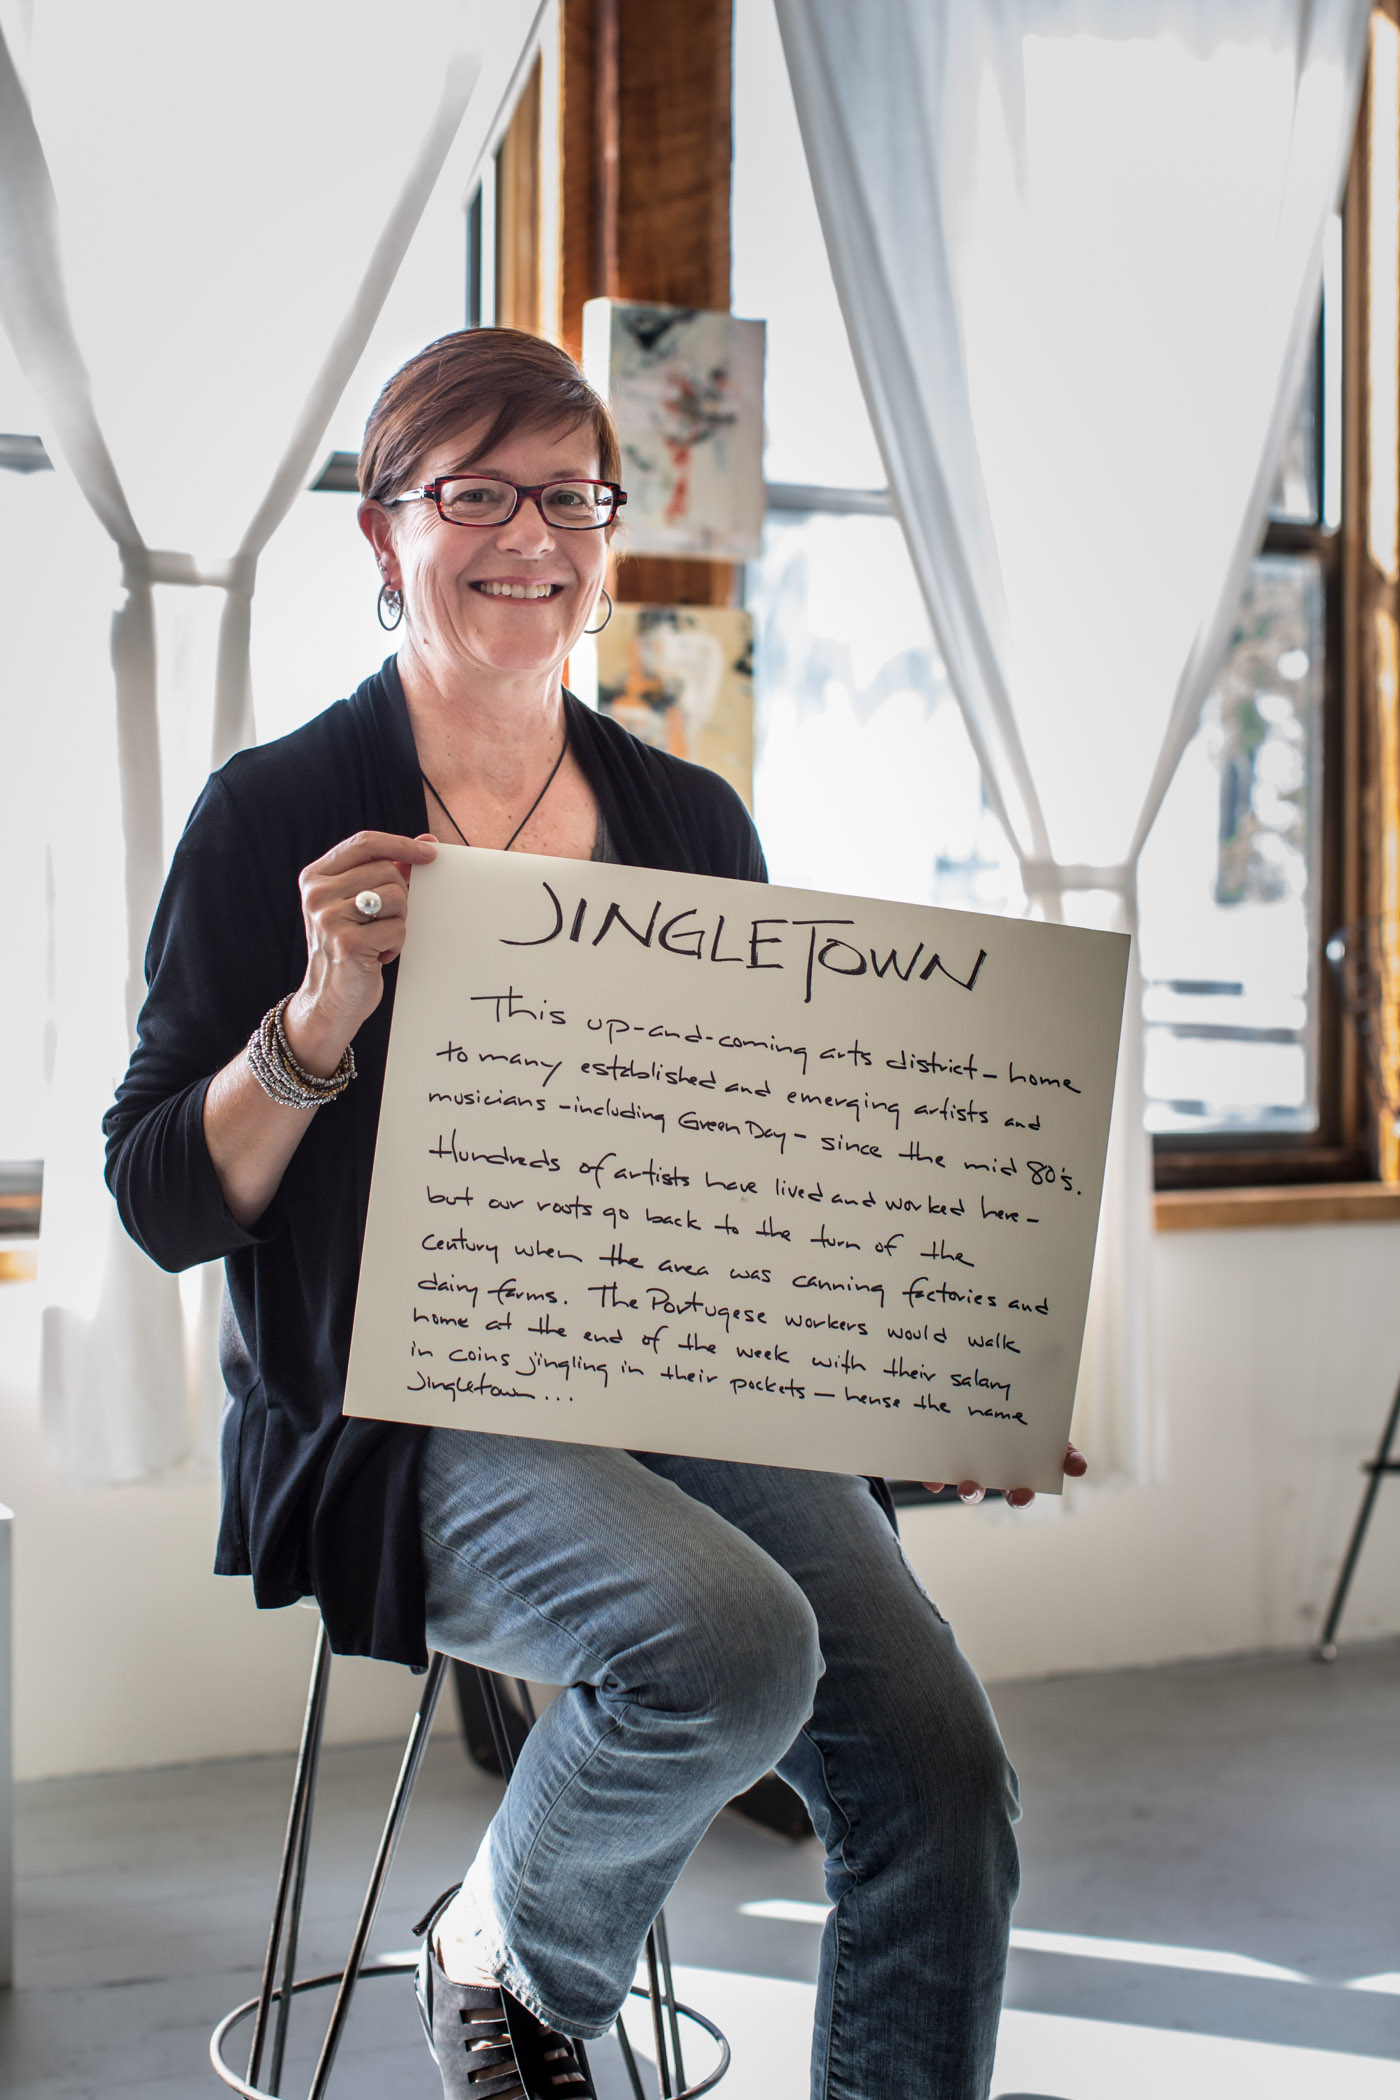 JINGLETOWN
This up-and-coming arts district - home
to many established and emerging artists and
musicians - including Green Day - since the mid 80's.
Hundreds of artists have lived and worked here -
but our roots go back to the turn of the
century when the area was canning factories and
dairy farms. The Portugese workers would walk
home at the end of the week with their salary
in coins jingling in their pockets - hense the name
Jingletown...